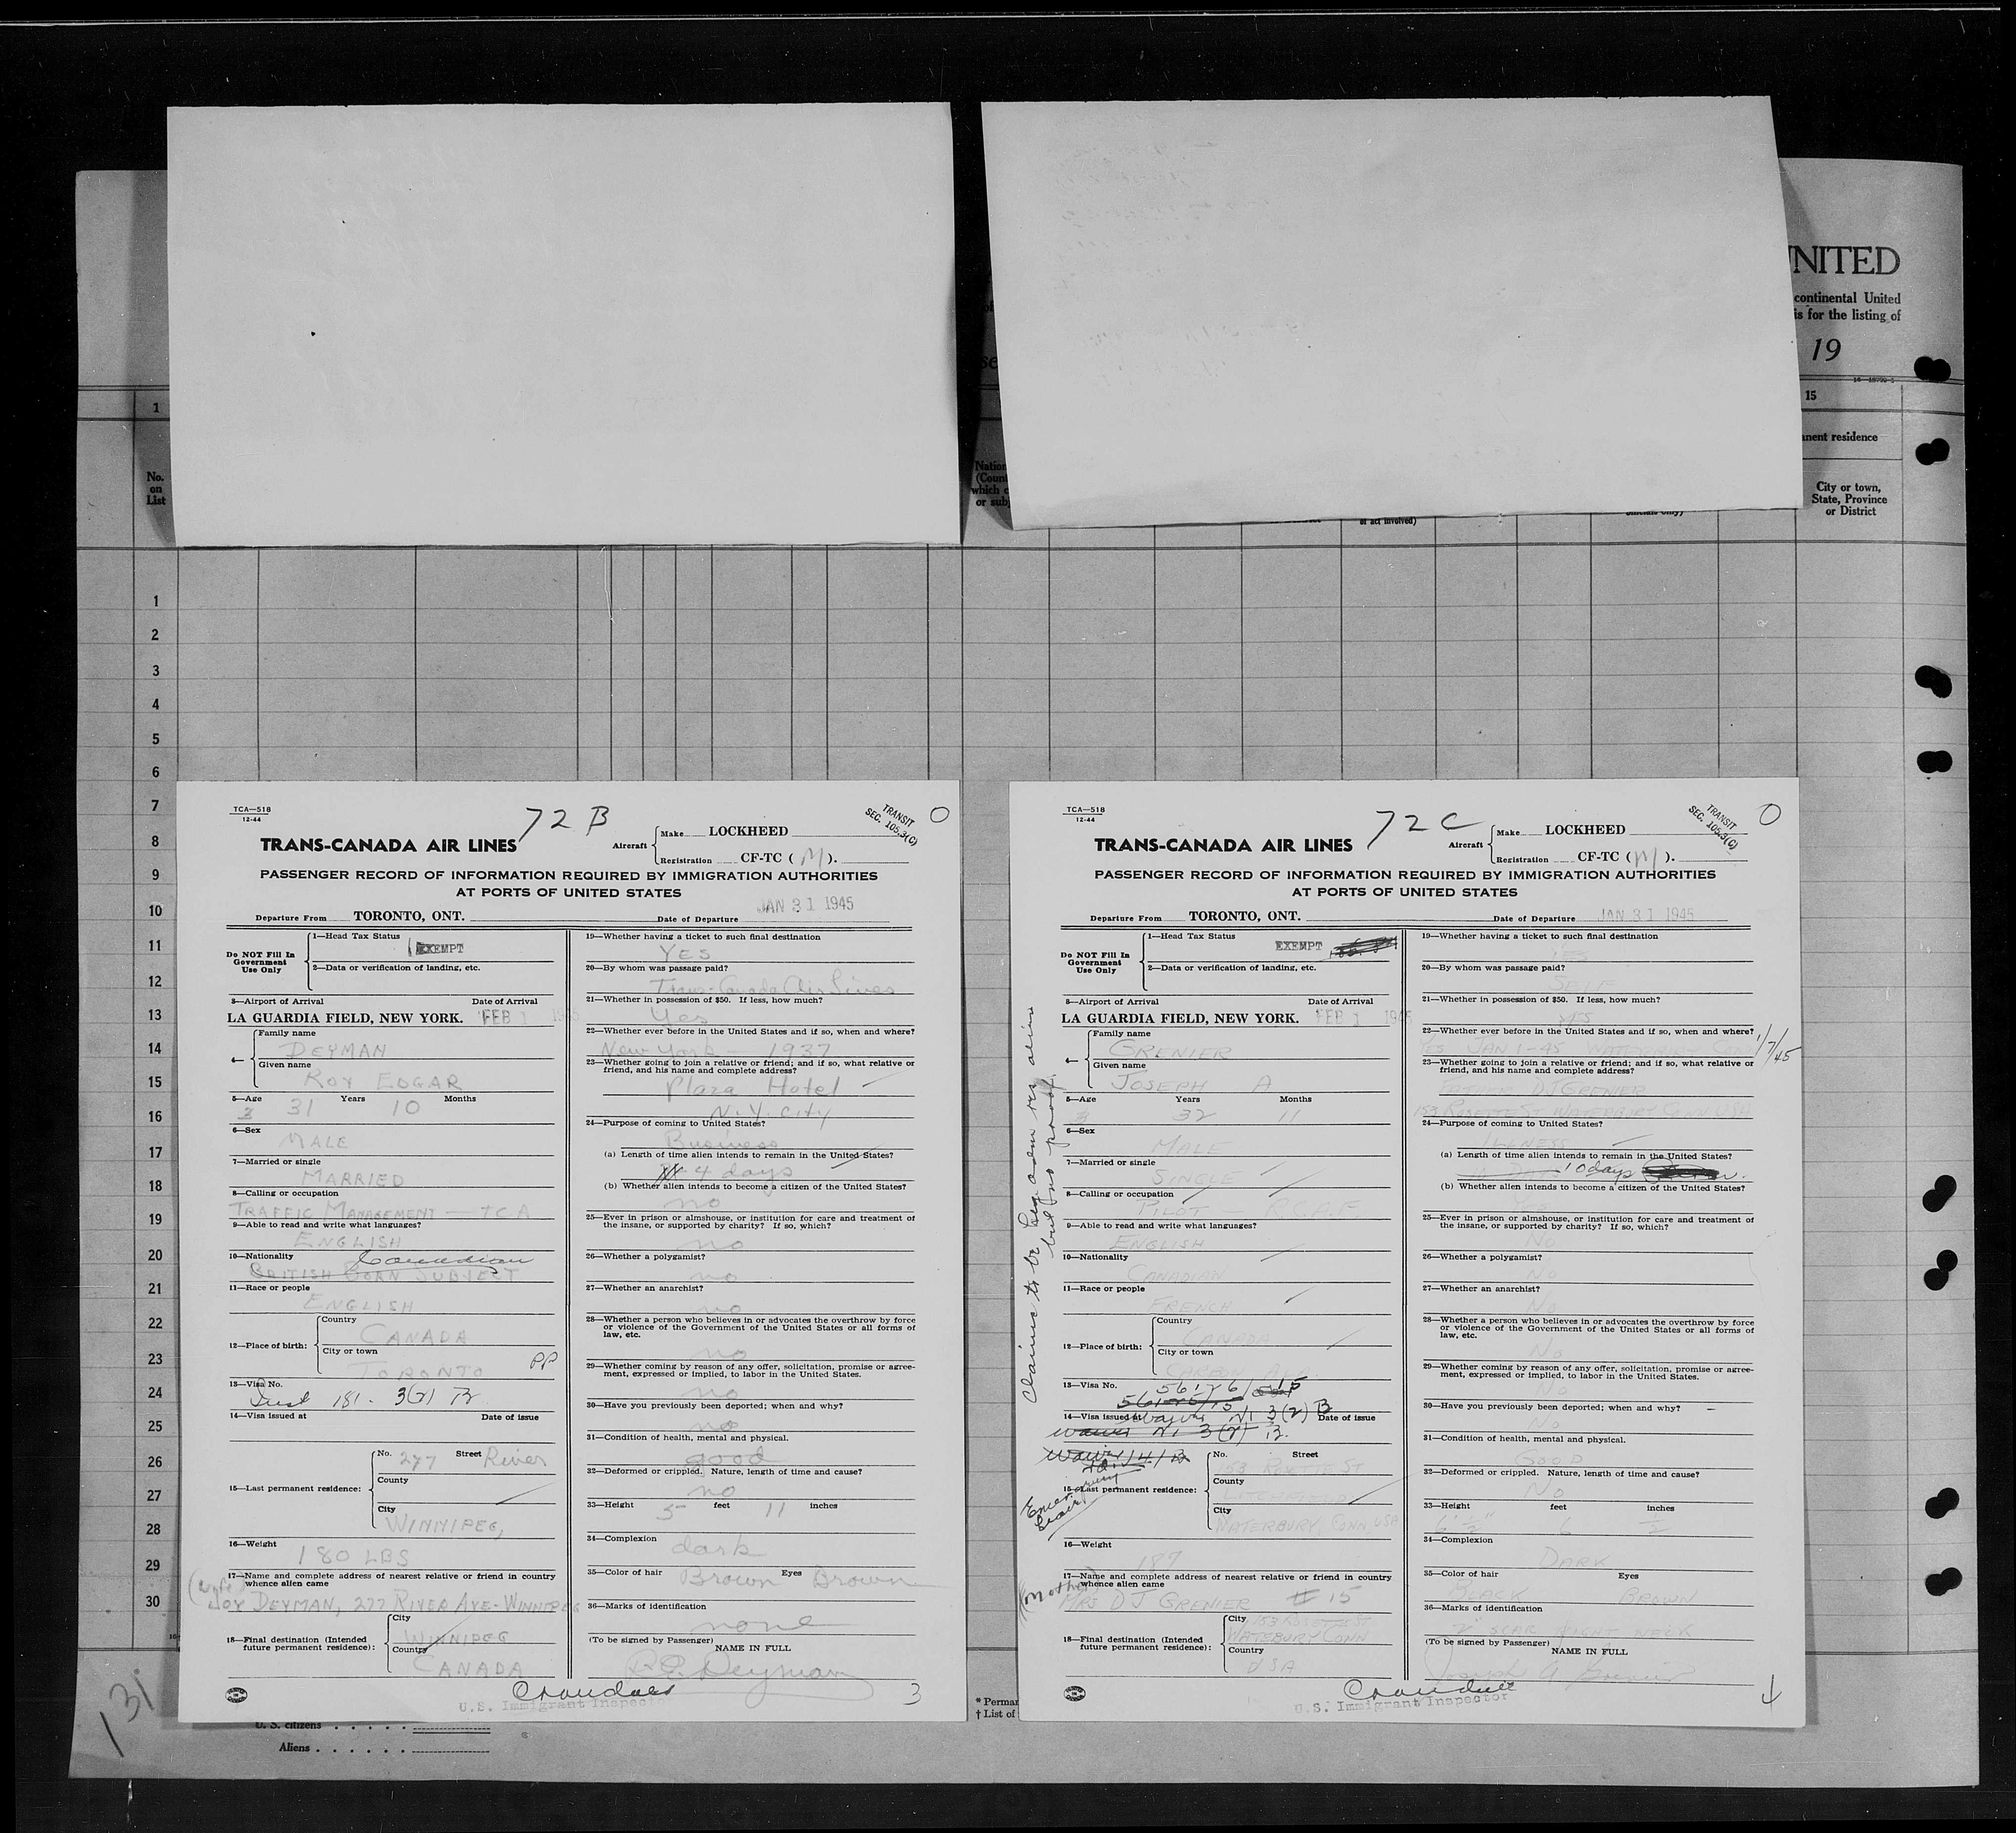 NITED
continental United
is for the listing of
19
16-18799-1
1
15
nent residence
No.
on
List
Nation
(Count
which c
or sub
at act involved)
City or town,
State, Province
or District
1
2
3
4
5
6
7
8
9
10
11
12
13
14
15
16
17
18
19
20
21
22
23
24
25
26
27
28
29
30
TCA—518
12-44
72 B
TRANSIT
SEC. 105.3(C)
O
TRANS-CANADA AIR LINES
Aircraft
Make LOCKHEED
Registration CF-TC (M).
PASSENGER RECORD OF INFORMATION REQUIRED BY IMMIGRATION AUTHORITIES
AT PORTS OF UNITED STATES
Departure From TORONTO, ONT.
Date of Departure JAN 31 1945
Do NOT Fill In
Government
Use Only
1—Head Tax Status
EXEMPT
2—Data or verification of landing, etc.
3—Airport of Arrival Date of Arrival
LA GUARDIA FIELD, NEW YORK. FEB 1 1945
4—
Family name
DEYMAN
Given name
ROY EDGAR
5—Age Years Months
31 10
6—Sex
MALE
7—Married or single
MARRIED
8—Calling or occupation
TRAFFIC MANAGEMENT — TCA
9—Able to read and write what languages?
ENGLISH
10—Nationality Canadian
BRITISH BORN SUBJECT
11—Race or people
ENGLISH
12—Place of birth:
Country
CANADA
City or town
TORONTO
PP
13—Visa No.
181. 3(2) B
14—Visa issued at Date of issue
15—Last permanent residence:
No. 277 Street River
County
City
WINNIPEG,
16—Weight
180 LBS
17—Name and complete address of nearest relative or friend in country
whence alien came
(wife)
JOY DEYMAN, 277 RIVER AVE-WINNIPEG
18—Final destination (Intended
future permanent residence):
City
WINNIPEG
Country
CANADA
19—Whether having a ticket to such final destination
YES
20—By whom was passage paid?
Trans-Canada Air Lines
21—Whether in possession of $50. If less, how much?
Yes
22—Whether ever before in the United States and if so, when and where?
New York 1937
23—Whether going to join a relative or friend; and if so, what relative or
friend, and his name and complete address?
Plaza Hotel
N.Y. City
24—Purpose of coming to United States?
Business
(a) Length of time alien intends to remain in the United States?
4 days
(b) Whether alien intends to become a citizen of the United States?
no
25—Ever in prison or almshouse, or institution for care and treatment of
the insane, or supported by charity? If so, which?
no
26—Whether a polygamist?
no
27—Whether an anarchist?
no
28—Whether a person who believes in or advocates the overthrow by force
or violence of the Government of the United States or all forms of
law, etc.
no
29—Whether coming by reason of any offer, solicitation, promise or agree-
ment, expressed or implied, to labor in the United States.
no
30—Have you previously been deported; when and why?
no
31—Condition of health, mental and physical.
good
32—Deformed or crippled. Nature, length of time and cause?
no
33—Height 5 feet 11 inches
34—Complexion
dark
35—Color of hair Brown Eyes Brown
36—Marks of identification
none
(To be signed by Passenger)
NAME IN FULL
R.E. Deyman
Crandall
U.S. Immigrant Inspector
3
TCA—518
12-44
72 C
TRANSIT
SEC. 105.3(C)
O
TRANS-CANADA AIR LINES
Aircraft
Make LOCKHEED
Registration CF-TC (M).
PASSENGER RECORD OF INFORMATION REQUIRED BY IMMIGRATION AUTHORITIES
AT PORTS OF UNITED STATES
Departure From TORONTO, ONT.
Date of Departure JAN 31 1945
Do NOT Fill In
Government
Use Only
1—Head Tax Status
EXEMPT
2—Data or verification of landing, etc.
3—Airport of Arrival Date of Arrival
LA GUARDIA FIELD, NEW YORK. FEB 1 1945
Claims to be leg adm res alien
but no proof.
4—
Family name
GRENIER
Given name
JOSEPH A
5—Age Years Months
32 11
6—Sex
MALE
7—Married or single
SINGLE
8—Calling or occupation
PILOT R.C.A.F
9—Able to read and write what languages?
ENGLISH
10—Nationality
CANADIAN
11—Race or people
FRENCH
12—Place of birth:
Country
CANADA
City or town
13—Visa No.
56126/15
14—Visa issued at Date of issue
Waiver N. 3(2) B
15—Last permanent residence:
No. Street
153 ROSETTE ST
County
City
WATERBURY CONN USA
16—Weight
187
17—Name and complete address of nearest relative or friend in country
whence alien came
(Mother)
MRS D J GRENIER # 15
18—Final destination (Intended
future permanent residence):
City 153 ROSETTE ST
WATERBURY CONN
Country
USA
19—Whether having a ticket to such final destination
YES
20—By whom was passage paid?
SELF
21—Whether in possession of $50. If less, how much?
YES
22—Whether ever before in the United States and if so, when and where?
YES JAN 1-45 WATERBURY CONN 1/7/45
23—Whether going to join a relative or friend; and if so, what relative or
friend, and his name and complete address?
D J GRENIER
153 ROSETTE ST WATERBURY CONN USA
24—Purpose of coming to United States?
ILLNESS
(a) Length of time alien intends to remain in the United States?
10 days
(b) Whether alien intends to become a citizen of the United States?
YES
25—Ever in prison or almshouse, or institution for care and treatment of
the insane, or supported by charity? If so, which?
NO
26—Whether a polygamist?
NO
27—Whether an anarchist?
NO
28—Whether a person who believes in or advocates the overthrow by force
or violence of the Government of the United States or all forms of
law, etc.
NO
29—Whether coming by reason of any offer, solicitation, promise or agree-
ment, expressed or implied, to labor in the United States.
NO
30—Have you previously been deported; when and why?
NO
31—Condition of health, mental and physical.
GOOD
32—Deformed or crippled. Nature, length of time and cause?
NO
33—Height feet inches
6 ½
34—Complexion
DARK
35—Color of hair Eyes
BLACK BROWN
36—Marks of identification
2" SCAR RIGHT NECK
(To be signed by Passenger)
NAME IN FULL
Joseph A Grenier
Crandall
U.S. Immigrant Inspector
4
131
U. S. citizens
Aliens
* Perman
† List of